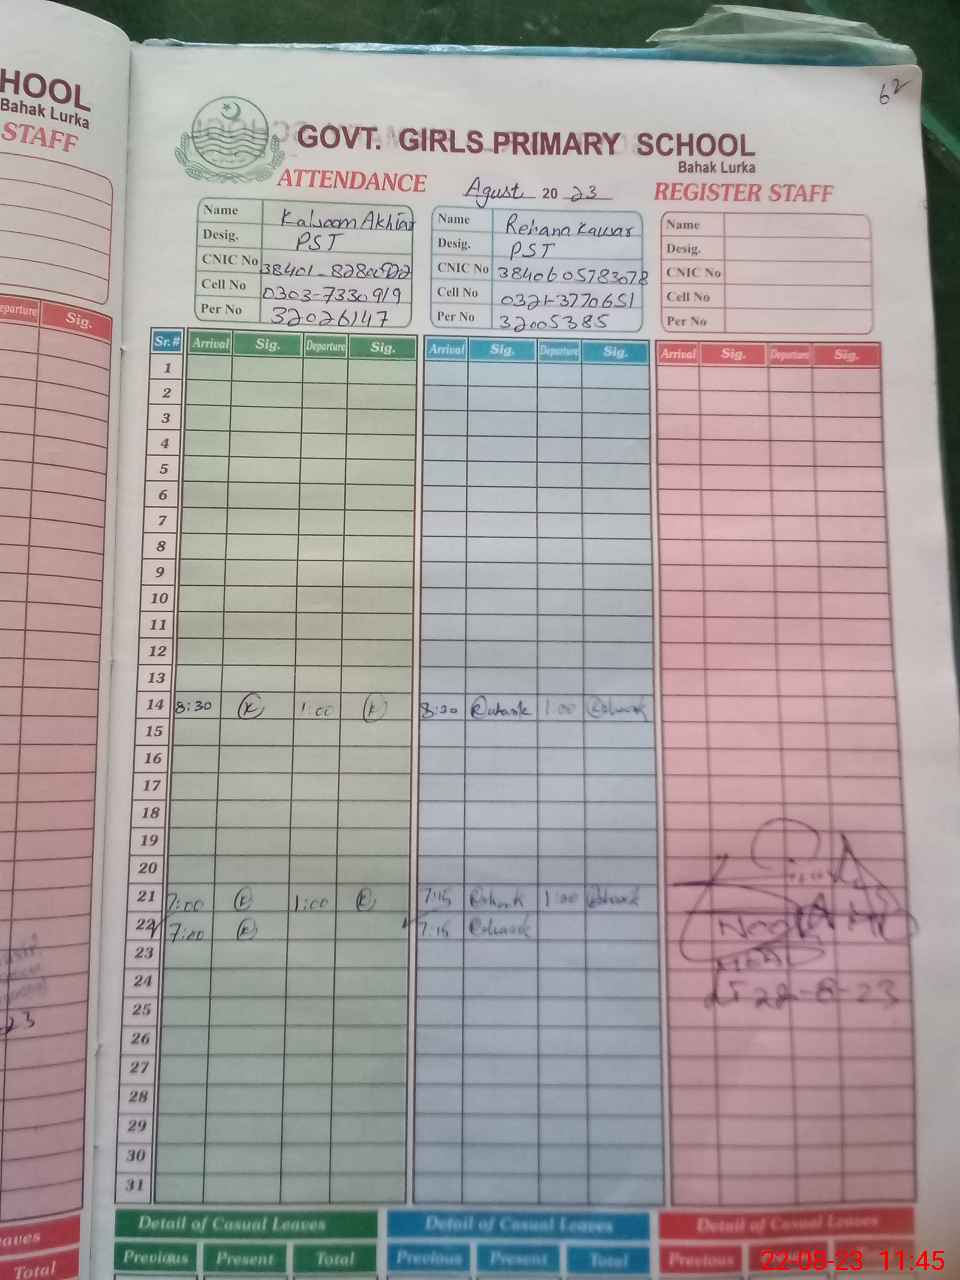 HOOL
Bahak Lurka
STAFF
eparture Sig.
-23
eaves
Total
62
GOVT. GIRLS PRIMARY SCHOOL
Bahak Lurka
ATTENDANCE Agust 20 23 REGISTER STAFF
Name Kalsoom Akhtar
Desig. PST
CNIC No
Cell No 0303-7330919
Per No 32026147
Name Rehana Kausar
Desig. PST
CNIC No 3840605783078
Cell No 0321-3770651
Per No 32005385
Name
Desig.
CNIC No
Cell No
Per No
Sr.# Arrival Sig. Departure Sig. Arrival Sig. Departure Sig. Arrival Sig. Departure Sig.
1
2
3
4
5
6
7
8
9
10
11
12
13
14 8:30 K 1:00 K 8:30 1:00
15
16
17
18
19
20
21 7:00 K 1:00 K 7:15 1:00
22 7:00 K 7:15
23
24
25
26
27
28
29
30
31
22-8-23
Detail of Casual Leaves Detail of Casual Leaves Detail of Casual Leaves
Previous Present Total Previous Present Total Previous
22-08-23 11:45